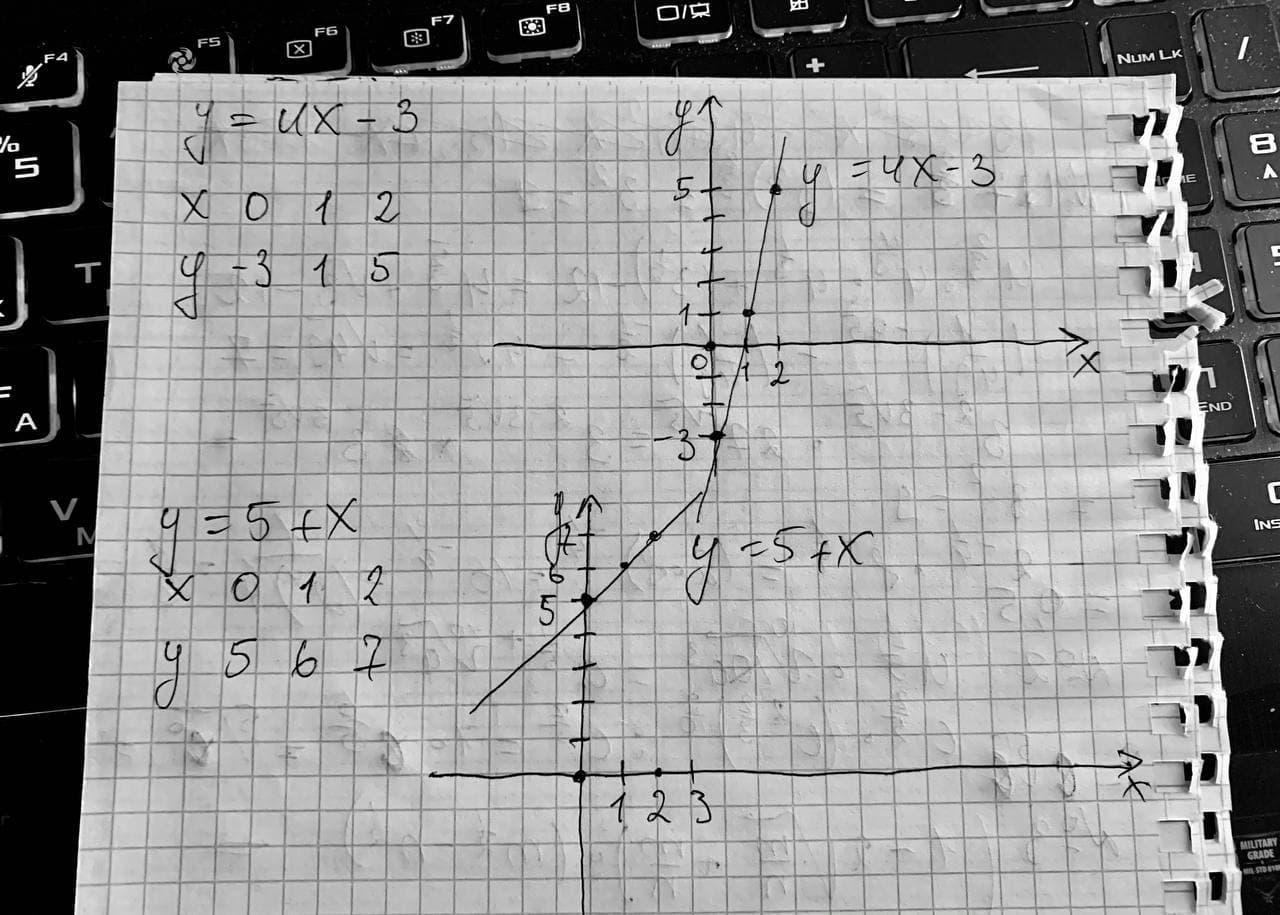 F4 F5 F6 F7 F8
NUM LK /
% 5
8
T
F A
END
V
INS
MILITARY GRADE
y = 4x - 3
x 0 1 2
y -3 1 5
y
y = 4x - 3
5
1
0 1 2 x
-3
y = 5 + x
x 0 1 2
y 5 6 7
y
7
6
5
y = 5 + x
1 2 3 x